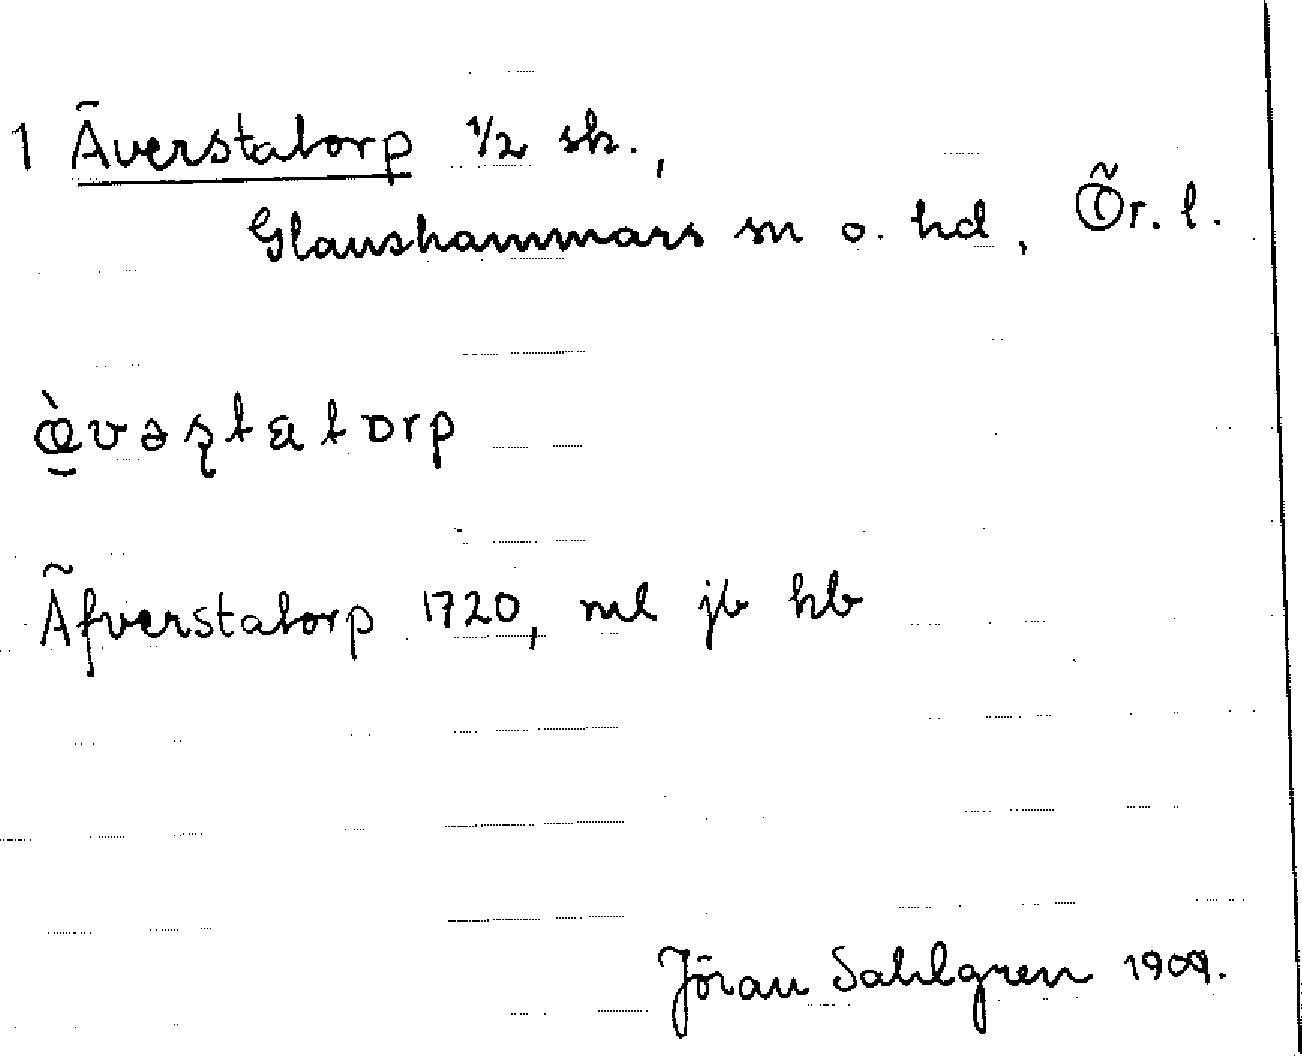 1 Äverstatorp 1/2 sk.,
Glanshammars sn o. hd, Ör. l.
æ̀vəʂtatorp
Äfverstatorp 1720, ml jb hb
Jöran Sahlgren 1909.